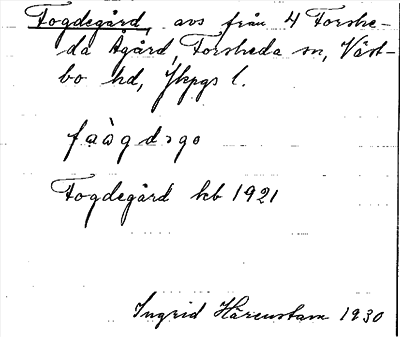 Fogdegård, avs från 4 Forshe-
da Ågård, Forsheda sn, Väst-
bo hd, Jkpgs l.
fàgdəgo
Fogdegård kb 1921
Ingrid Härenstam 1930